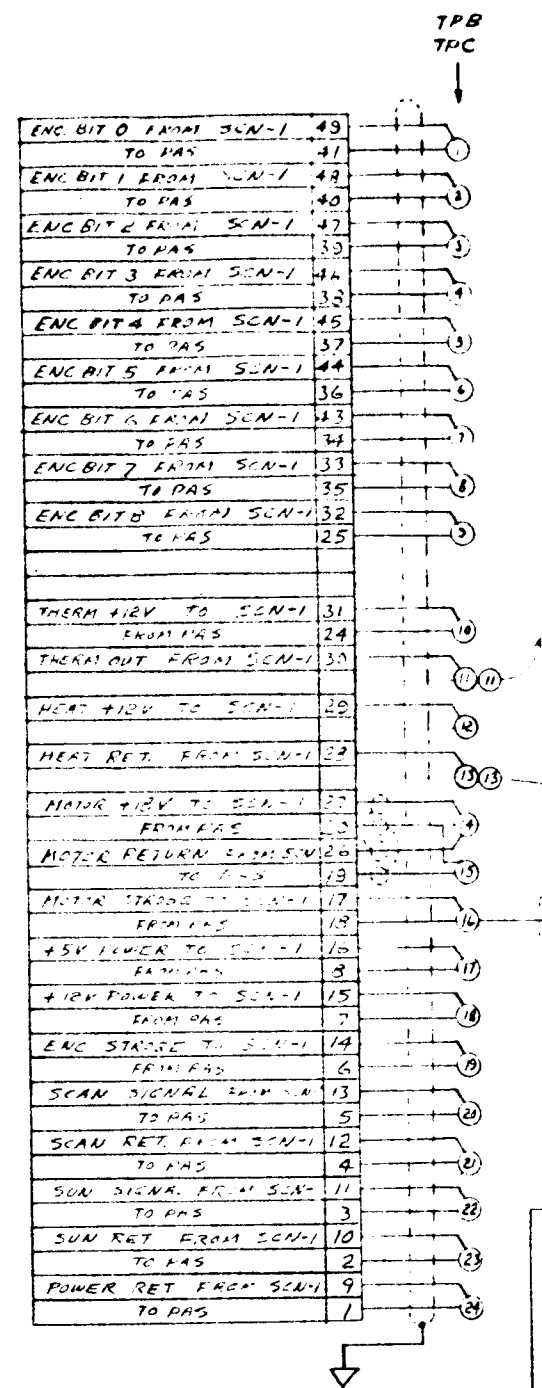 TPB
TPC
ENC BIT 0 FROM SCN-1 49
TO PAS 41 1
ENC BIT 1 FROM SCN-1 48
TO PAS 40 2
ENC BIT 2 FROM SCN-1 47
TO PAS 39 3
ENC BIT 3 FROM SCN-1 46
TO PAS 38 4
ENC BIT 4 FROM SCN-1 45
TO PAS 37 5
ENC BIT 5 FROM SCN-1 44
TO PAS 36 6
ENC BIT 6 FROM SCN-1 43
TO PAS 34 7
ENC BIT 7 FROM SCN-1 33
TO PAS 35 8
ENC BIT 8 FROM SCN-1 32
TO PAS 25 9
THERM +12V TO SCN-1 31
FROM PAS 24 10
THERM OUT FROM SCN-1 30
11 11
HEAT +12V TO SCN-1 29
12
HEAT RET. FROM SCN-1 28
13 13
MOTOR +12V TO SCN-1 27
FROM PAS 20 14
MOTOR RETURN FROM SCN 26
TO PAS 19 15
MOTOR STROBE TO SCN-1 17
FROM PAS 18 16
+5V POWER TO SCN-1 16
FROM PAS 8 17
+12V POWER TO SCN-1 15
FROM PAS 7 18
ENC STROBE TO SCN-1 14
FROM PAS 6 19
SCAN SIGNAL FROM SCN 13
TO PAS 5 20
SCAN RET. FROM SCN-1 12
TO PAS 4 21
SUN SIGNAL FROM SCN- 11
TO PAS 3 22
SUN RET FROM SCN-1 10
TO PAS 2 23
POWER RET FROM SCN-1 9
TO PAS 1 24